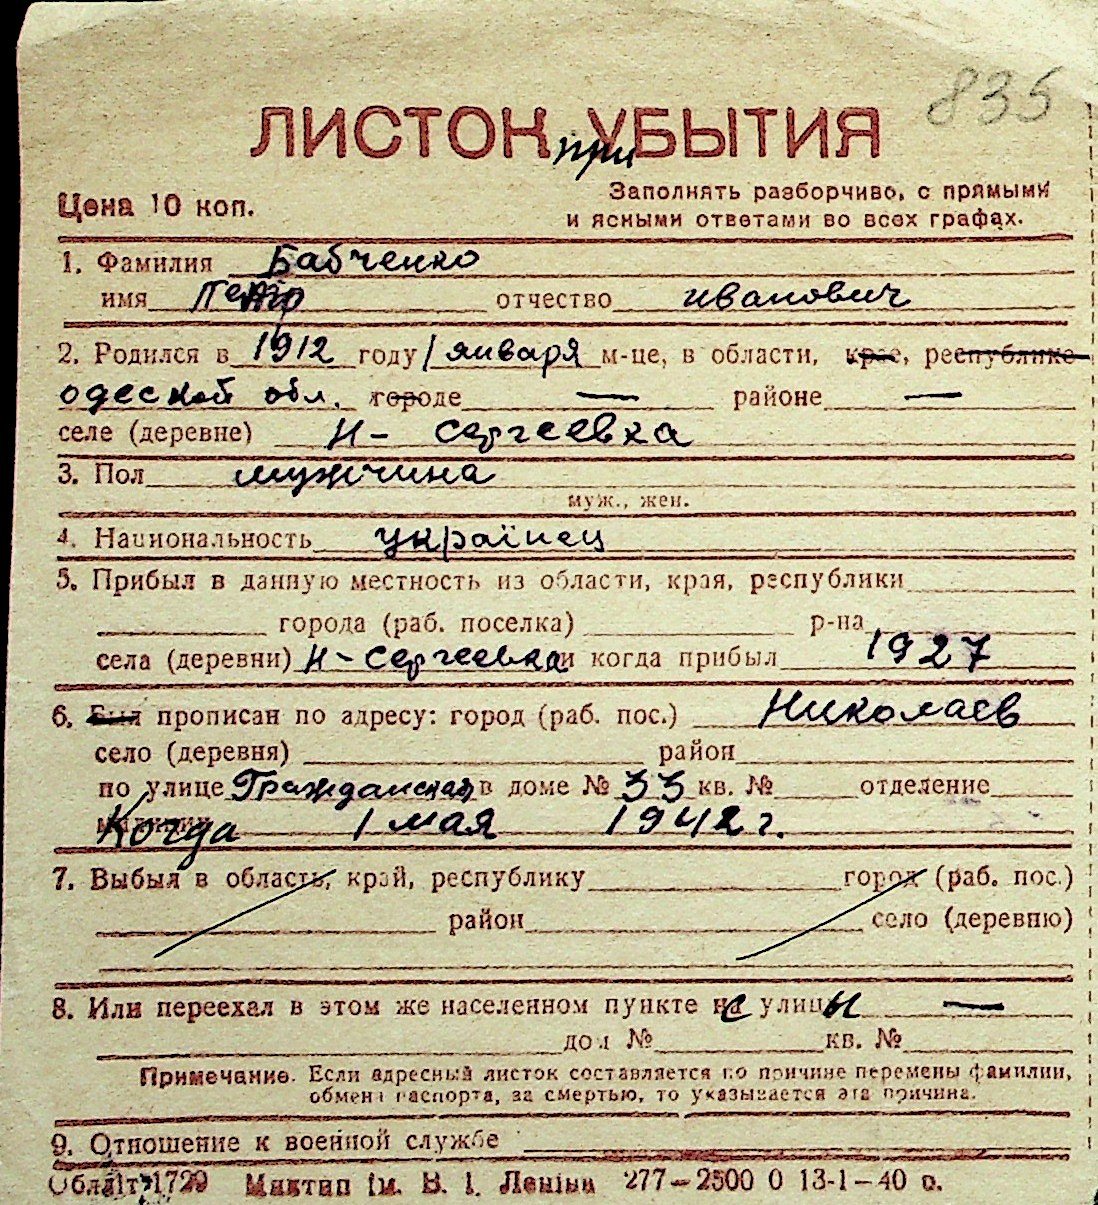 835
ЛИСТОК при УБЫТИЯ
Цена 10 коп.
Заполнять разборчиво, с прямыми
и ясными ответами во всех графах.
1. Фамилия Бабченко
имя Петро отчество иванович
2. Родился в 1912 году 1 января м-це, в области, крае, республике
одеской обл. городе — районе —
селе (деревне) Н - сергеевка
3. Пол мужчина
муж., жен.
4. Национальность українец
5. Прибыл в данную местность из области, края, республики
города (раб. поселка) р-на
села (деревни) Н - сергеевка и когда прибыл 1927
6. Был прописан по адресу: город (раб. пос.) Николаев
село (деревня) район
по улице Гражданская в доме № 33 кв. № отделение
милиции Когда 1 мая 1942 г.
7. Выбыл в область, край, республику город (раб. пос.)
район село (деревню)
8. Или переехал в этом же населенном пункте с улицы —
дом № кв. №
Примечание. Если адресный листок составляется по причине перемены фамилии,
обмена паспорта, за смертью, то указывается эта причина.
9. Отношение к военной службе
Обллiт 1729 Миктип ім. В. І. Леніна 277—2500 0 13-1—40 р.